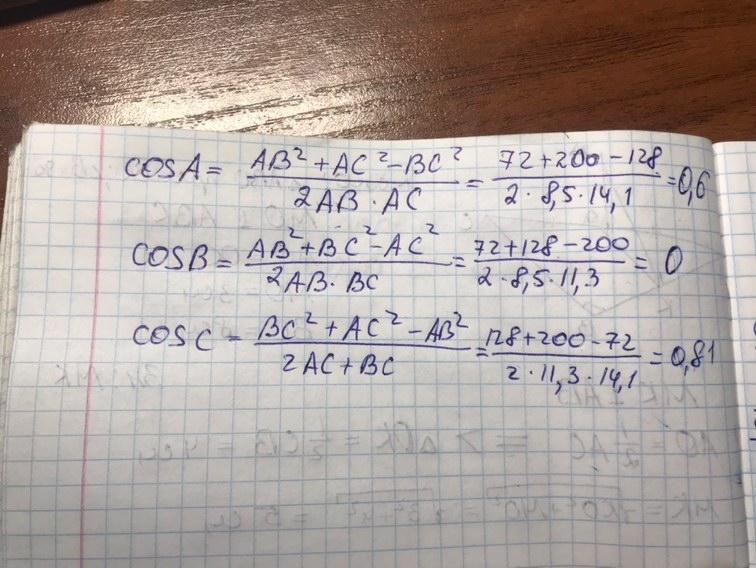 COSA = (AB² + AC² - BC²) / (2AB · AC) = (72 + 200 - 128) / (2 · 8,5 · 14,1) = 0,6
COSB = (AB² + BC² - AC²) / (2AB · BC) = (72 + 128 - 200) / (2 · 8,5 · 11,3) = 0
COSC = (BC² + AC² - AB²) / (2AC + BC) = (128 + 200 - 72) / (2 · 11,3 · 14,1) = 0,81